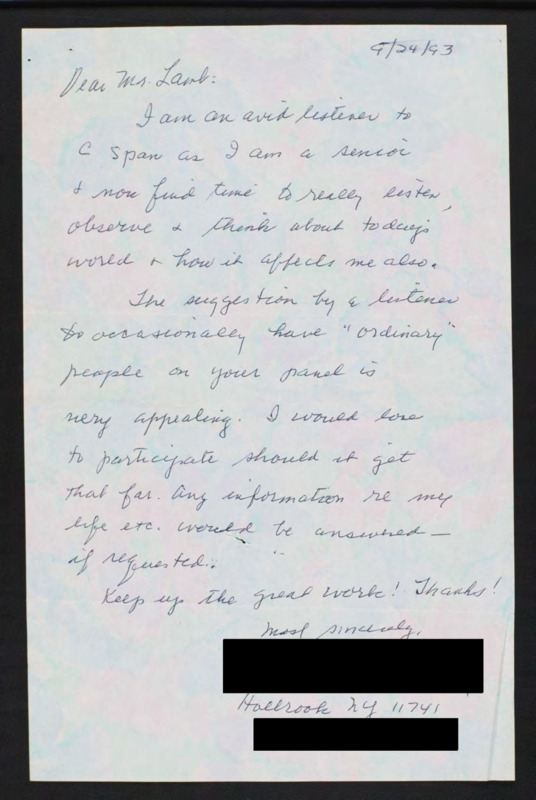 9/24/93
Dear Mr. Lamb:
I am an avid listener to
C Span as I am a senior
& now find time to really listen,
observe & think about todays
world & how it affects me also.
The suggestion by a listener
to occasionally have "ordinary"
people on your panel is
very appealing. I would love
to participate should it get
that far. Any information re my
life etc. would be answered —
if requested.
Keep up the great work! Thanks!
Most sincerely,
Holbrook NY 11741